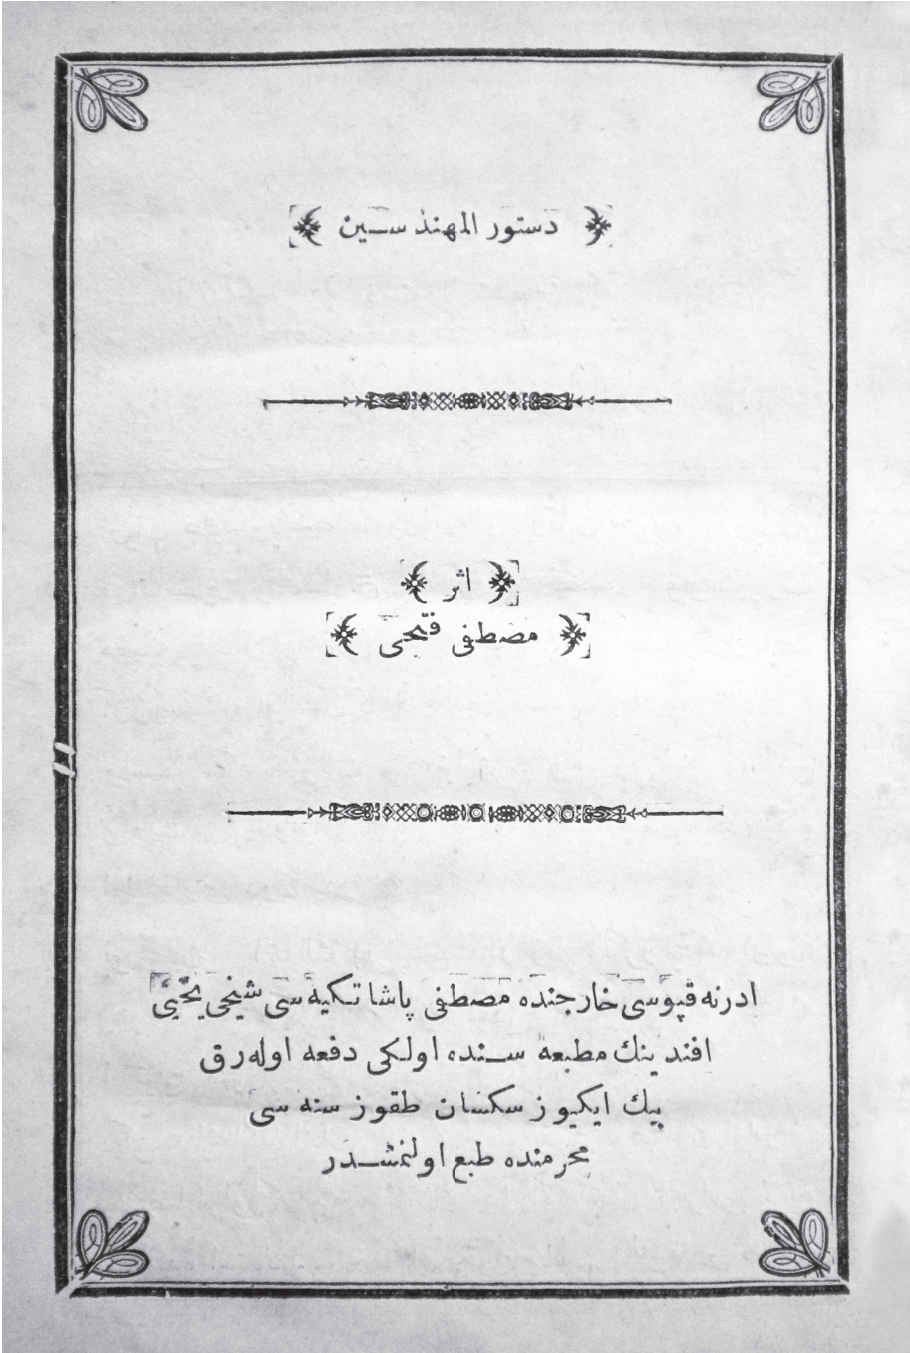 دستور المهندسين
اثر
مصطفی فتحی
ادرنه قپوسی خارجنده مصطفی پاشا تكیه سی شیخی یحیی
افندینك مطبعه سنده اولكی دفعه اوله رق
بیك ایكیوز سكسان طقوز سنه سی
محرمنده طبع اولنمشدر